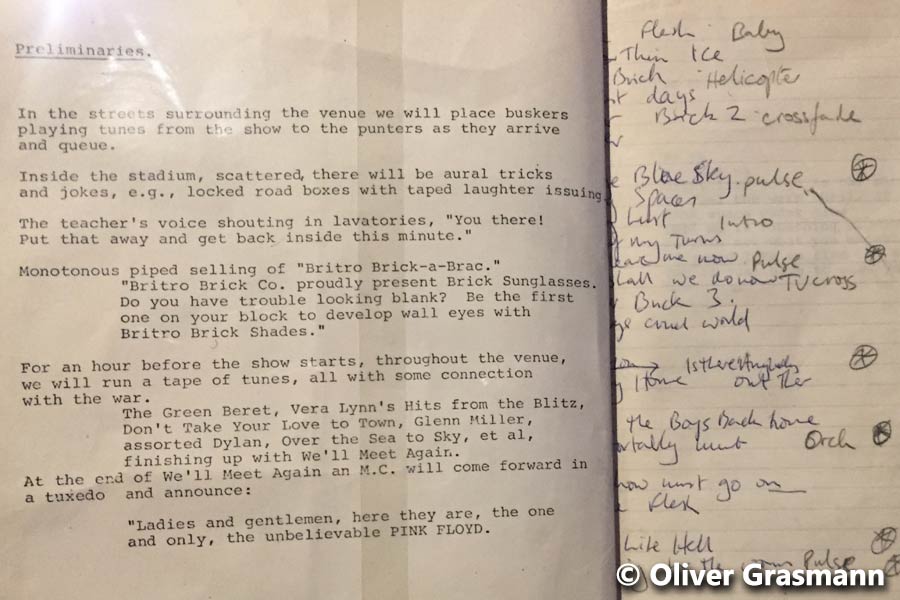 Preliminaries.
In the streets surrounding the venue we will place buskers
playing tunes from the show to the punters as they arrive
and queue.
Inside the stadium, scattered, there will be aural tricks
and jokes, e.g., locked road boxes with taped laughter issuing
The teacher's voice shouting in lavatories, "You there!
Put that away and get back inside this minute."
Monotonous piped selling of "Britro Brick-a-Brac."
"Britro Brick Co. proudly present Brick Sunglasses.
Do you have trouble looking blank? Be the first
one on your block to develop wall eyes with
Britro Brick Shades."
For an hour before the show starts, throughout the venue,
we will run a tape of tunes, all with some connection
with the war.
The Green Beret, Vera Lynn's Hits from the Blitz,
Don't Take Your Love to Town, Glenn Miller,
assorted Dylan, Over the Sea to Sky, et al,
finishing up with We'll Meet Again.
At the end of We'll Meet Again an M.C. will come forward in
a tuxedo and announce:
"Ladies and gentlemen, here they are, the one
and only, the unbelievable PINK FLOYD.
Flesh Baby
Thin Ice
Brick Helicopter
days
Brick 2 crossfade
Blue Sky. pulse
Spaces
Lust Intro
my Turns
me now Pulse
we do now TV cross
Brick 3.
cruel world
Is there Anybody
Home out ther
the Boys Back home
Orch
must go on
Flesh
Like Hell
the Pulse
© Oliver Grasmann